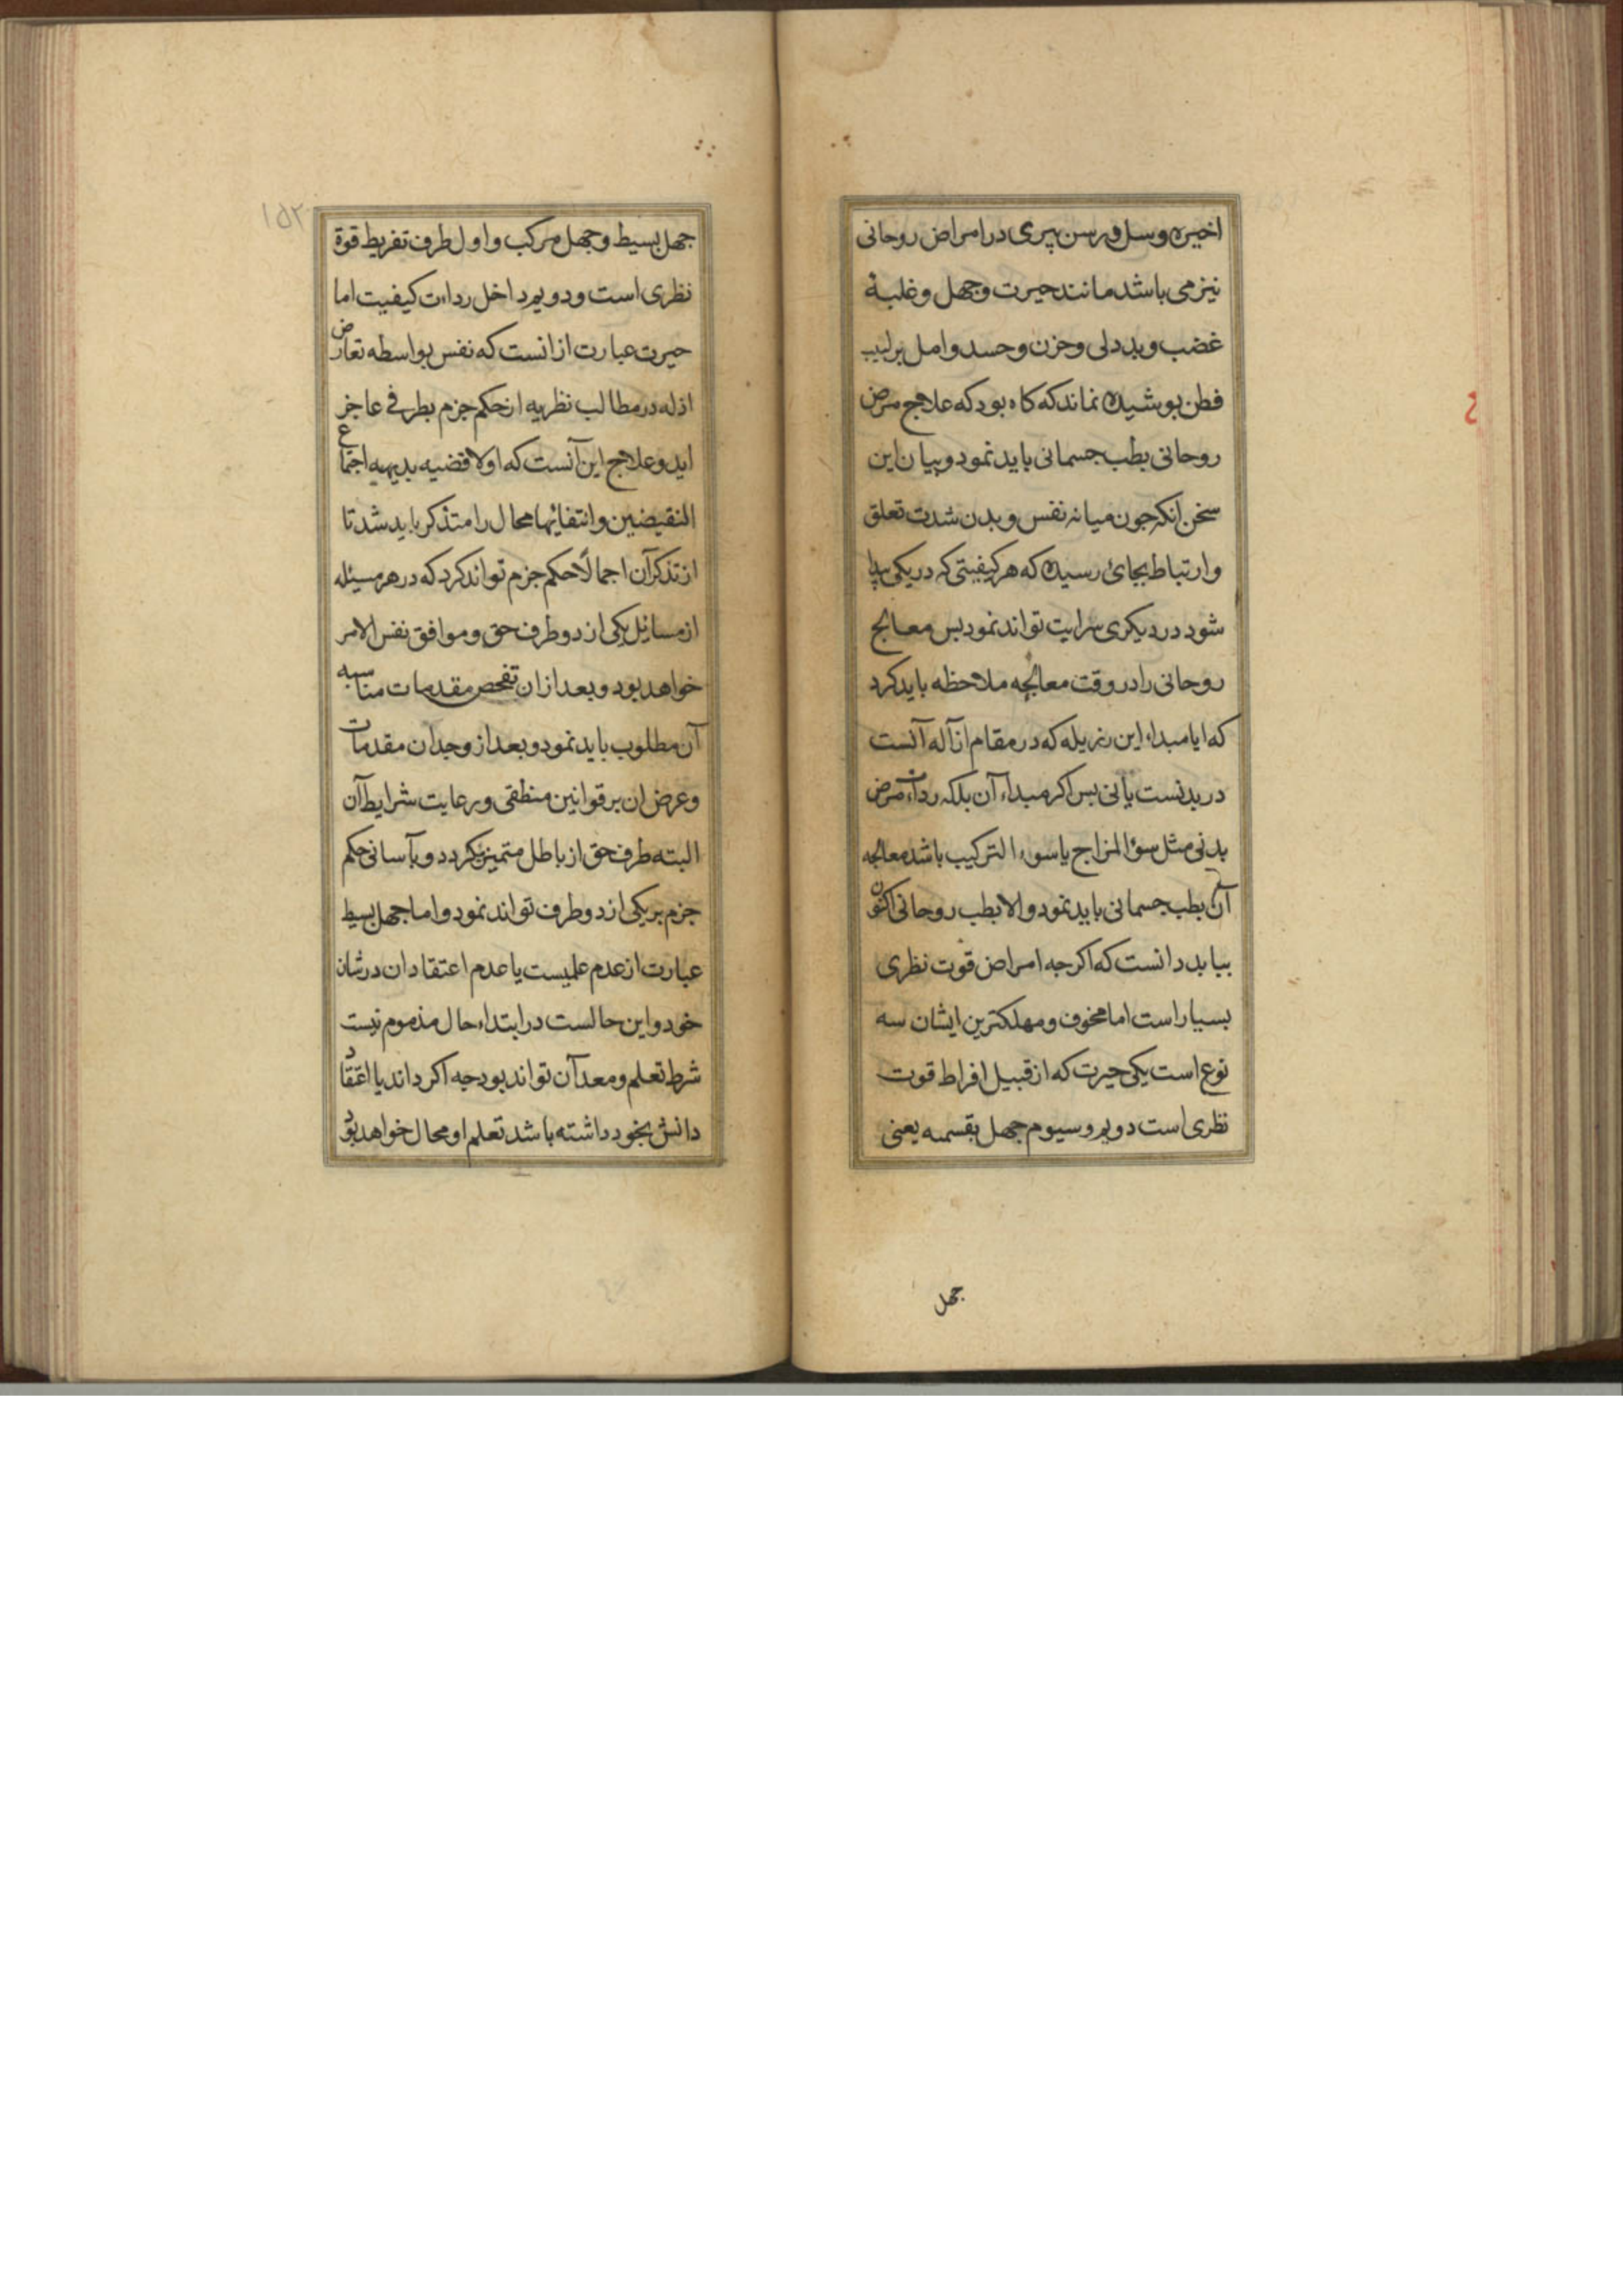 اخیره وسل و برسن پیری در امراض روحانی
نیز می باشد مانند حیرت و جهل و غلبة
غضب و بددلی و حزن و حسد و امل بر لبیب
فطن پوشیده نماند که کاه بود که علاج مرض
روحانی بطب جسمانی باید نمود و بیان این
سخن انکه جون میانه نفس و بدن شدت تعلق
و ارتباط بجائ رسیده که هر کیفیتی که در یکی پیدا
شود در دیکری سرایت تواند نمود بس معالج
روحانی را در وقت معالجه ملاحظه باید کرد
که ایا مبداء این رزیله که در مقام ازاله آنست
در بدنست یا نی بس اکر مبداء آن بلکه رداءت مرض
بدنی مثل سؤ المزاج یا سوء الترکیب باشد معالجه
آن بطب جسمانی باید نمود والا بطب روحانی اکنون
بباید دانست که اکرجه امراض قوت نظری
بسیار است اما مخوف و مهلکترین ایشان سه
نوع است یکی حیرت که از قبیل افراط قوت
نظری است دویم و سیوم جهل بقسمیه یعنی
جهل
۱۵۲
جهل بسیط و جهل مرکب و اول طرف تفریط قوة
نظری است و دویم داخل رداءت کیفیت اما
حیرت عبارت از انست که نفس بواسطه تعارض
ادله در مطالب نظریه از حکم جزم بطرفی عاجز
اید و علاج این آنست که اولا قضیه بدیهیه اجتماع
النقیضین و انتفائهما محال را متذکر باید شد تا
از تذکر آن اجمالًا حکم جزم تواند کرد که در هر مسئله
از مسائل یکی از دو طرف حق و موافق نفس الامر
خواهد بود و بعد از ان تفحص مقدمات مناسبه
آن مطلوب باید نمود و بعد از وجدان مقدمات
و عرض ان بر قوانین منطقی و رعایت شرایط آن
البته طرف حق از باطل متمیز کردد و بآسانی حکم
جزم بر یکی از دو طرف تواند نمود و اما جهل بسیط
عبارت از عدم علمیست یا عدم اعتقاد ان در شان
خود و این حالست در ابتداء حال مذموم نیست
شرط تعلم و معد آن تواند بود جه اکر داند یا اعتقاد
دانش بخود داشته باشد تعلم او محال خواهد بود